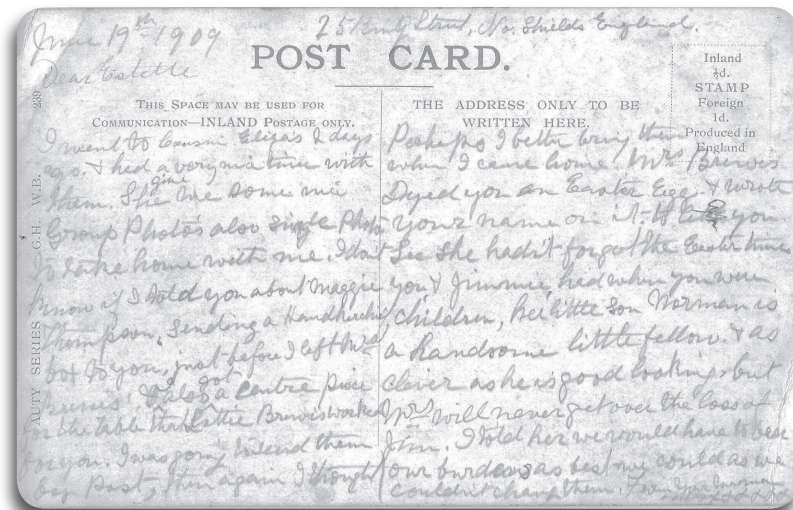 June 19th 1909
25 Street, No. Shields England.
Dear Estelle
POST CARD.
Inland
½d.
STAMP
Foreign
1d.
Produced in
England
239 G.H. W.B. AUTY SERIES
THIS SPACE MAY BE USED FOR
COMMUNICATION—INLAND POSTAGE ONLY.
I went to Cousin Eliza's 2 days
ago. & had a very nice time with
them. She give me some nice
Group Photo's also single Photo
to take home with me. I don't
know if I told you about Maggie
Thompson, sending a Handkerchief
box to you, just before I left Mrs
Brewis' & also got a centre piece
for the table that Lottie Brewis worked
for you. I was going to send them
by post, then again I thought
THE ADDRESS ONLY TO BE
WRITTEN HERE.
Perhaps I better bring them
when I came home. Mrs Brewis
Dyed you an Easter Egg & wrote
your name on it. you
See she hadn't forgot the Easter time
you & Jimmie had when you were
children, her little son Norman is
a handsome little fellow. & as
clever as he is good looking, but
Mrs will never get over the loss of
Jim. I told her we would have to bear
our burdens as best we could as we
couldn't change them.